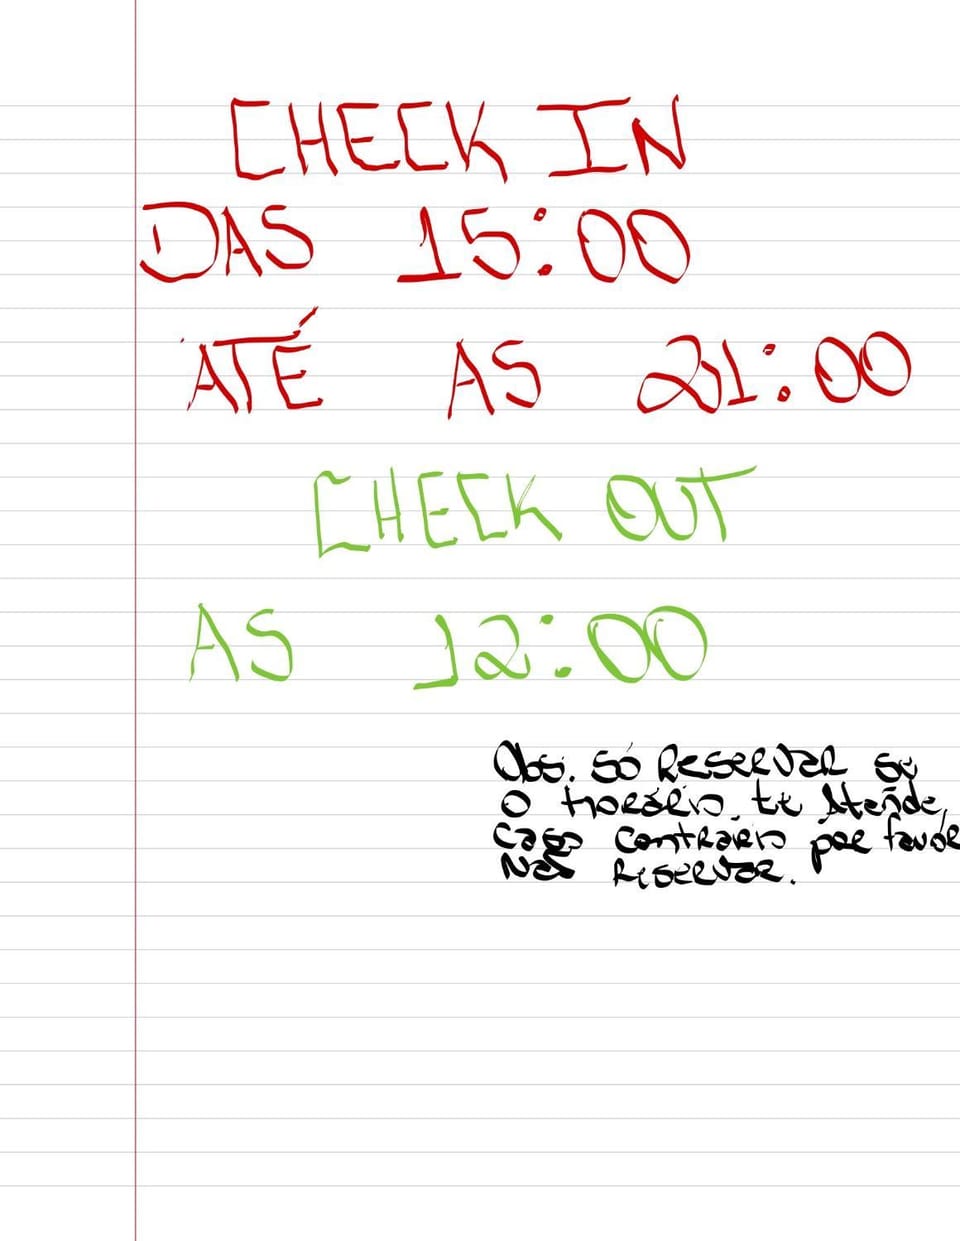 CHECK IN
DAS 15:00
ATÉ AS 21:00
CHECK OUT
AS 12:00
Obs. só Reservar se
o horário te Atende,
caso contrario por favor
Não Reservar.